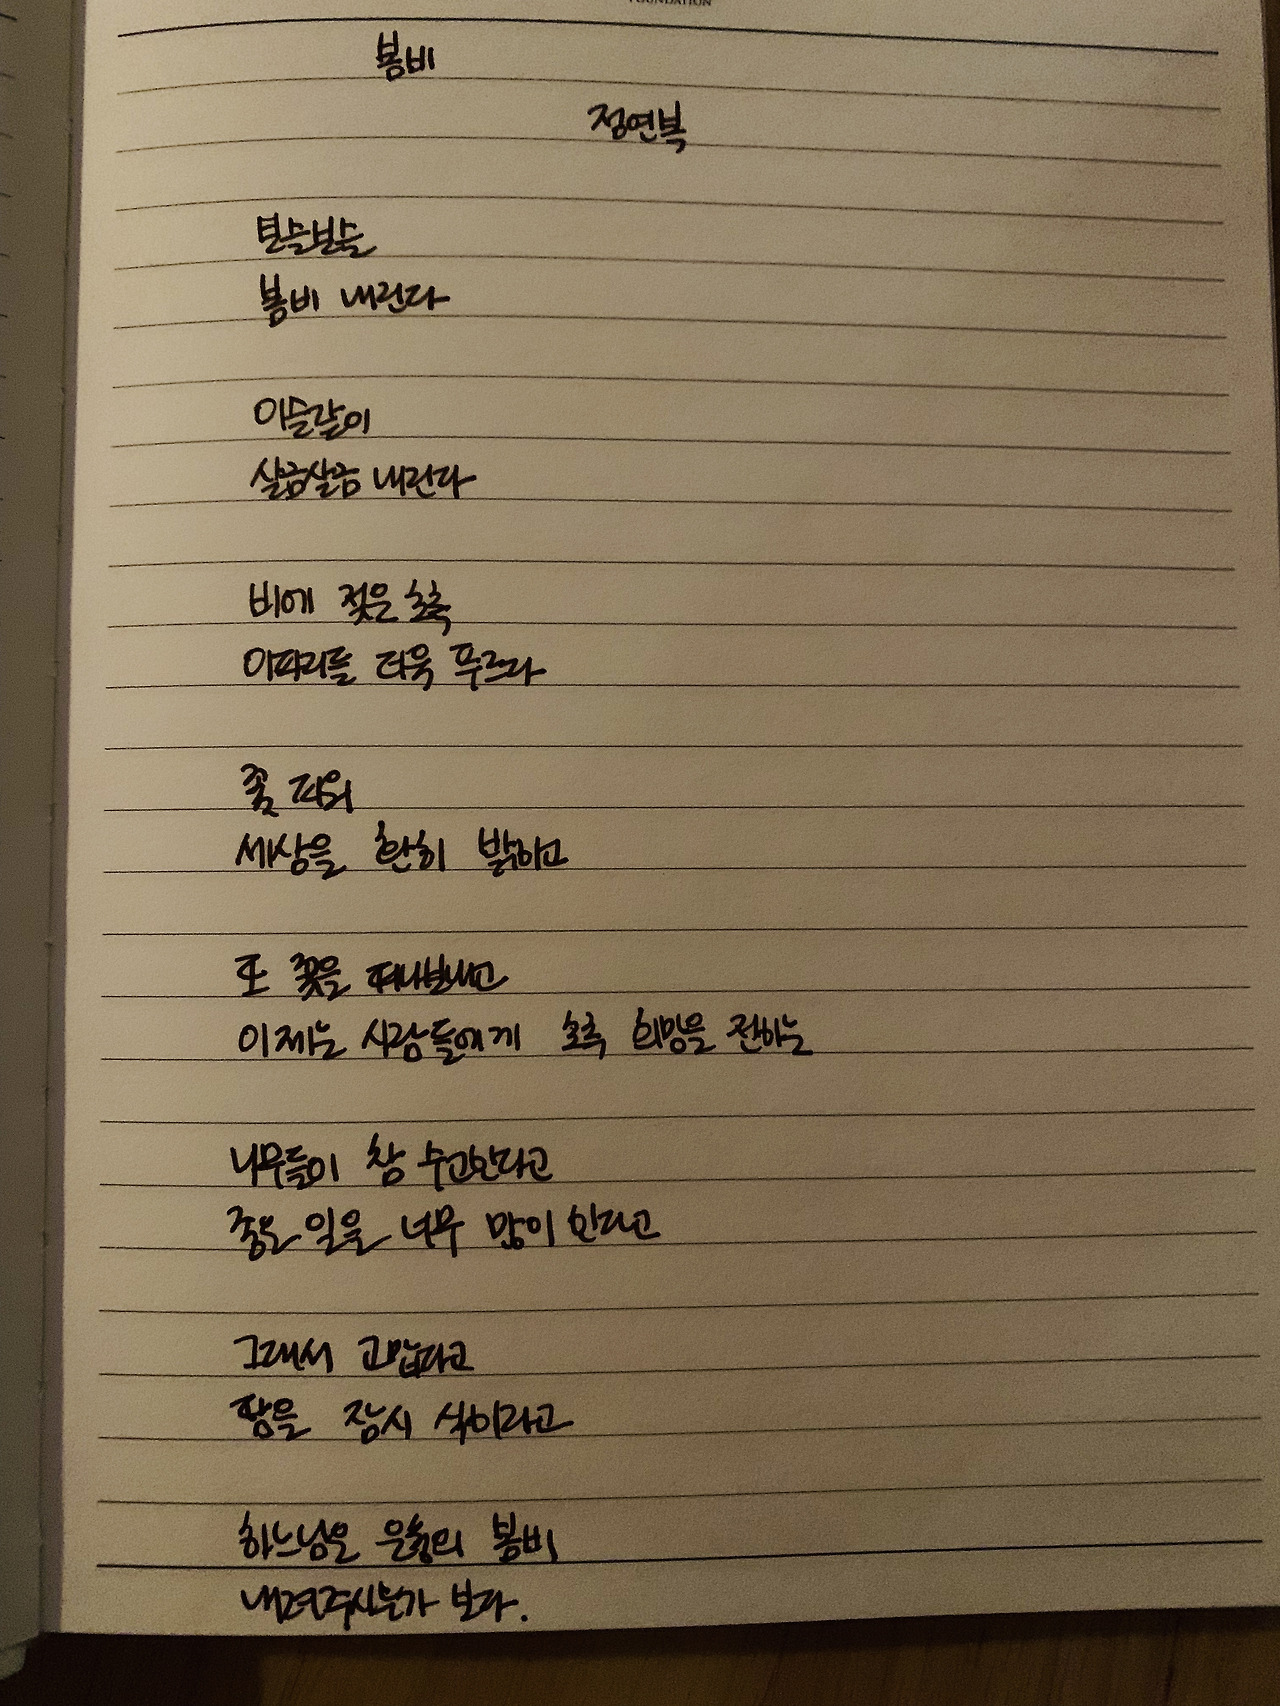 FOUNDATION
봄비
정연복
보슬보슬
봄비 내린다
이슬같이
살금살금 내린다
비에 젖은 초록
이파리들 더욱 푸르다
꽃 피워
세상을 환히 밝히고
또 꽃을 떠나보내고
이제는 사람들에게 초록 희망을 전하는
나무들이 참 수고한다고
좋은 일을 너무 많이 한다고
그래서 고맙다고
땀을 잠시 식히라고
하느님은 은총의 봄비
내려주시는가 보다.